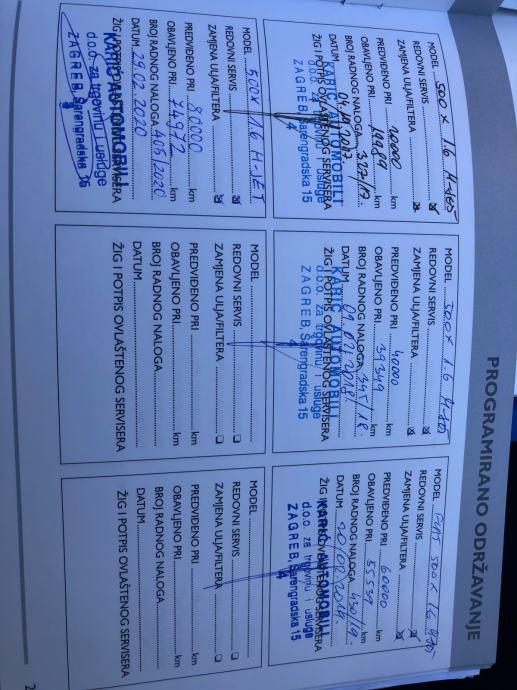 PROGRAMIRANO ODRŽAVANJE
MODEL 500X 1.6 M-JET
REDOVNI SERVIS
ZAMJENA ULJA/FILTERA
PREDVIĐENO PRI 20000 km
OBAVLJENO PRI km
BROJ RADNOG NALOGA
DATUM
ŽIG I POTPIS OVLAŠTENOG SERVISERA
KARIĆ AUTOMOBILI
d.o.o. za trgovinu i usluge
ZAGREB, Šarengradska 15
4
MODEL 500X 1.6 M-JET
REDOVNI SERVIS
ZAMJENA ULJA/FILTERA
PREDVIĐENO PRI 40000
OBAVLJENO PRI 39349 km
BROJ RADNOG NALOGA 345/18.
DATUM
ŽIG I POTPIS OVLAŠTENOG SERVISERA
KARIĆ AUTOMOBILI
d.o.o. za trgovinu i usluge
ZAGREB, Šarengradska 15
4
MODEL FIAT 500X 1.6 MJET
REDOVNI SERVIS
ZAMJENA ULJA/FILTERA
PREDVIĐENO PRI 60000 km
OBAVLJENO PRI 55539 km
BROJ RADNOG NALOGA 430/19.
DATUM
ŽIG I POTPIS OVLAŠTENOG SERVISERA
KARIĆ AUTOMOBILI
d.o.o. za trgovinu i usluge
ZAGREB, Šarengradska 15
4
MODEL 500X 1.6 M-JET
REDOVNI SERVIS
ZAMJENA ULJA/FILTERA
PREDVIĐENO PRI 80000 km
OBAVLJENO PRI 74972 km
BROJ RADNOG NALOGA 405/2020
DATUM 29.02.2020
ŽIG I POTPIS OVLAŠTENOG SERVISERA
KARIĆ AUTOMOBILI
d.o.o. za trgovinu i usluge
ZAGREB, Šarengradska 15
MODEL
REDOVNI SERVIS
ZAMJENA ULJA/FILTERA
PREDVIĐENO PRI km
OBAVLJENO PRI km
BROJ RADNOG NALOGA
DATUM
ŽIG I POTPIS OVLAŠTENOG SERVISERA
MODEL
REDOVNI SERVIS
ZAMJENA ULJA/FILTERA
PREDVIĐENO PRI km
OBAVLJENO PRI km
BROJ RADNOG NALOGA
DATUM
ŽIG I POTPIS OVLAŠTENOG SERVISERA